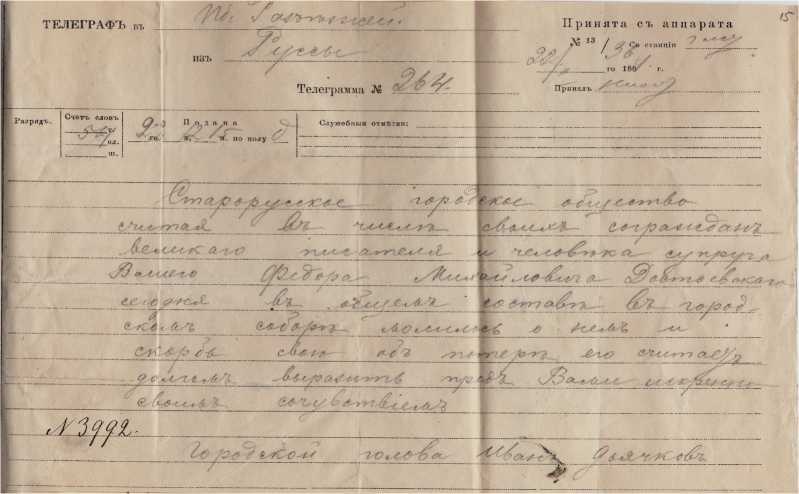 15
ТЕЛЕГРАФЪ въ Пб.
изъ Руссы
Телеграмма № 264.
Принята съ аппарата
№ 13 / Со станціи
22/1 го 1881 г.
Принялъ
Разрядъ.
Счетъ словъ
57
ол.
ш.
Подана
22 го. 2 ч. 15 м. по полу д
Служебныя отмѣтки:
Старорусское городское общество
считая въ числѣ своихъ согражданъ
великаго писателя и человѣка супруга
Вашего Федора Михайловича Достоевскаго
сегодня въ общемъ составѣ въ город-
скомъ соборѣ молилось о немъ и
скорбь свою объ потерѣ его считаетъ
долгомъ выразить предъ Вами искрени
своимъ сочувствіемъ
N 3992.
Городской голова Иванъ Дьячковъ